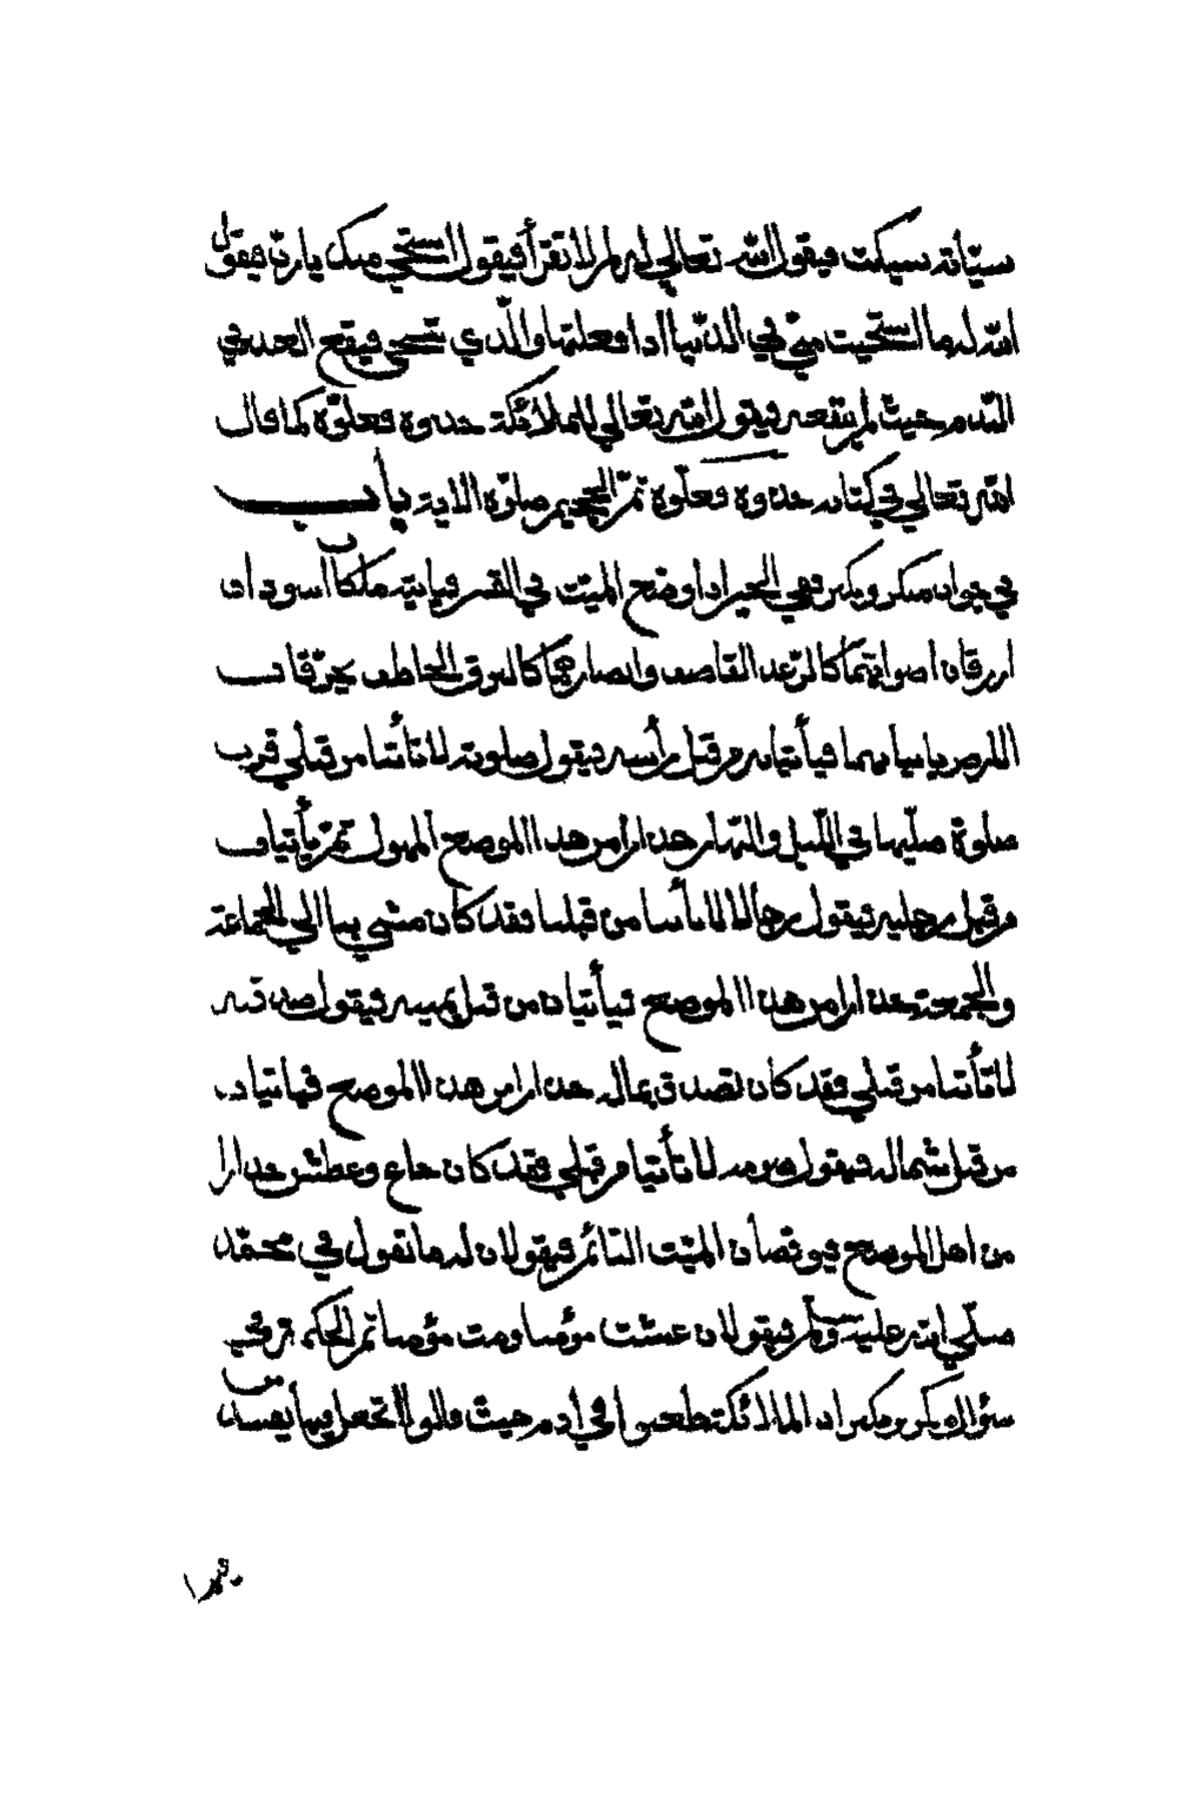 سيّأته سيكت فيقول الله تعالي له لم لا تقرأ فيقول استحي منك يا ربّ فيقول
الله له ما استحيت منّي في الدّنيا اذا فعلتها والّذي تستحي فيقع العبد في
النّدم حيث لم ينفعه فيقول الله تعالي للملائكة خذوه فغلوّه كما قال
الله تعالي في كتابه خذوه فغلّوه ثمّ الجحيم صلّوه الاية باب
في جواب منكر ونكير فهي الخبر اذا وضع الميّت في القبر فيأتيه ملكان اسودان
ازرقان اصواتهما كالرّعد القاصف وابصارهما كالبرق الخاطف يخرّقان
الارض بانيابهما فيأتيانه من قبل رأسه فيقول صلوته لا تأتنا من قبلي فربّ
صلوة صلّيها في اللّيل والنّهار حذارا من هذا الموضع المهول ثمّ يأتياه
من قبل رجليه فيقول رجلاه لا تأتنا من قبلنا فقد كان مشي بنا الي الجماعة
والجمعة حذارا من هذا الموضع فيأتيان من قبل يمينه فيقول صدقته
لا تأتنا من قبلي فقد كان تصدق بماله حذارا من هذا الموضع فيأتيان
من قبل شماله فيقول صومه لا تأتيا من قبلي فقد كان جاع وعطش حذارا
من اهل الموضع فيوقضأن الميّت النّائم فيقولان له ما تقول في محمّد
صلّي الله عليه وسلّم فيقولان عشت مؤمنا ومت مؤمنا ثمّ الحكمة في
سؤال منكر ونكير ان الملائكة طعنوا في ادم حيث قالوا اتجعل فيها من يفسد